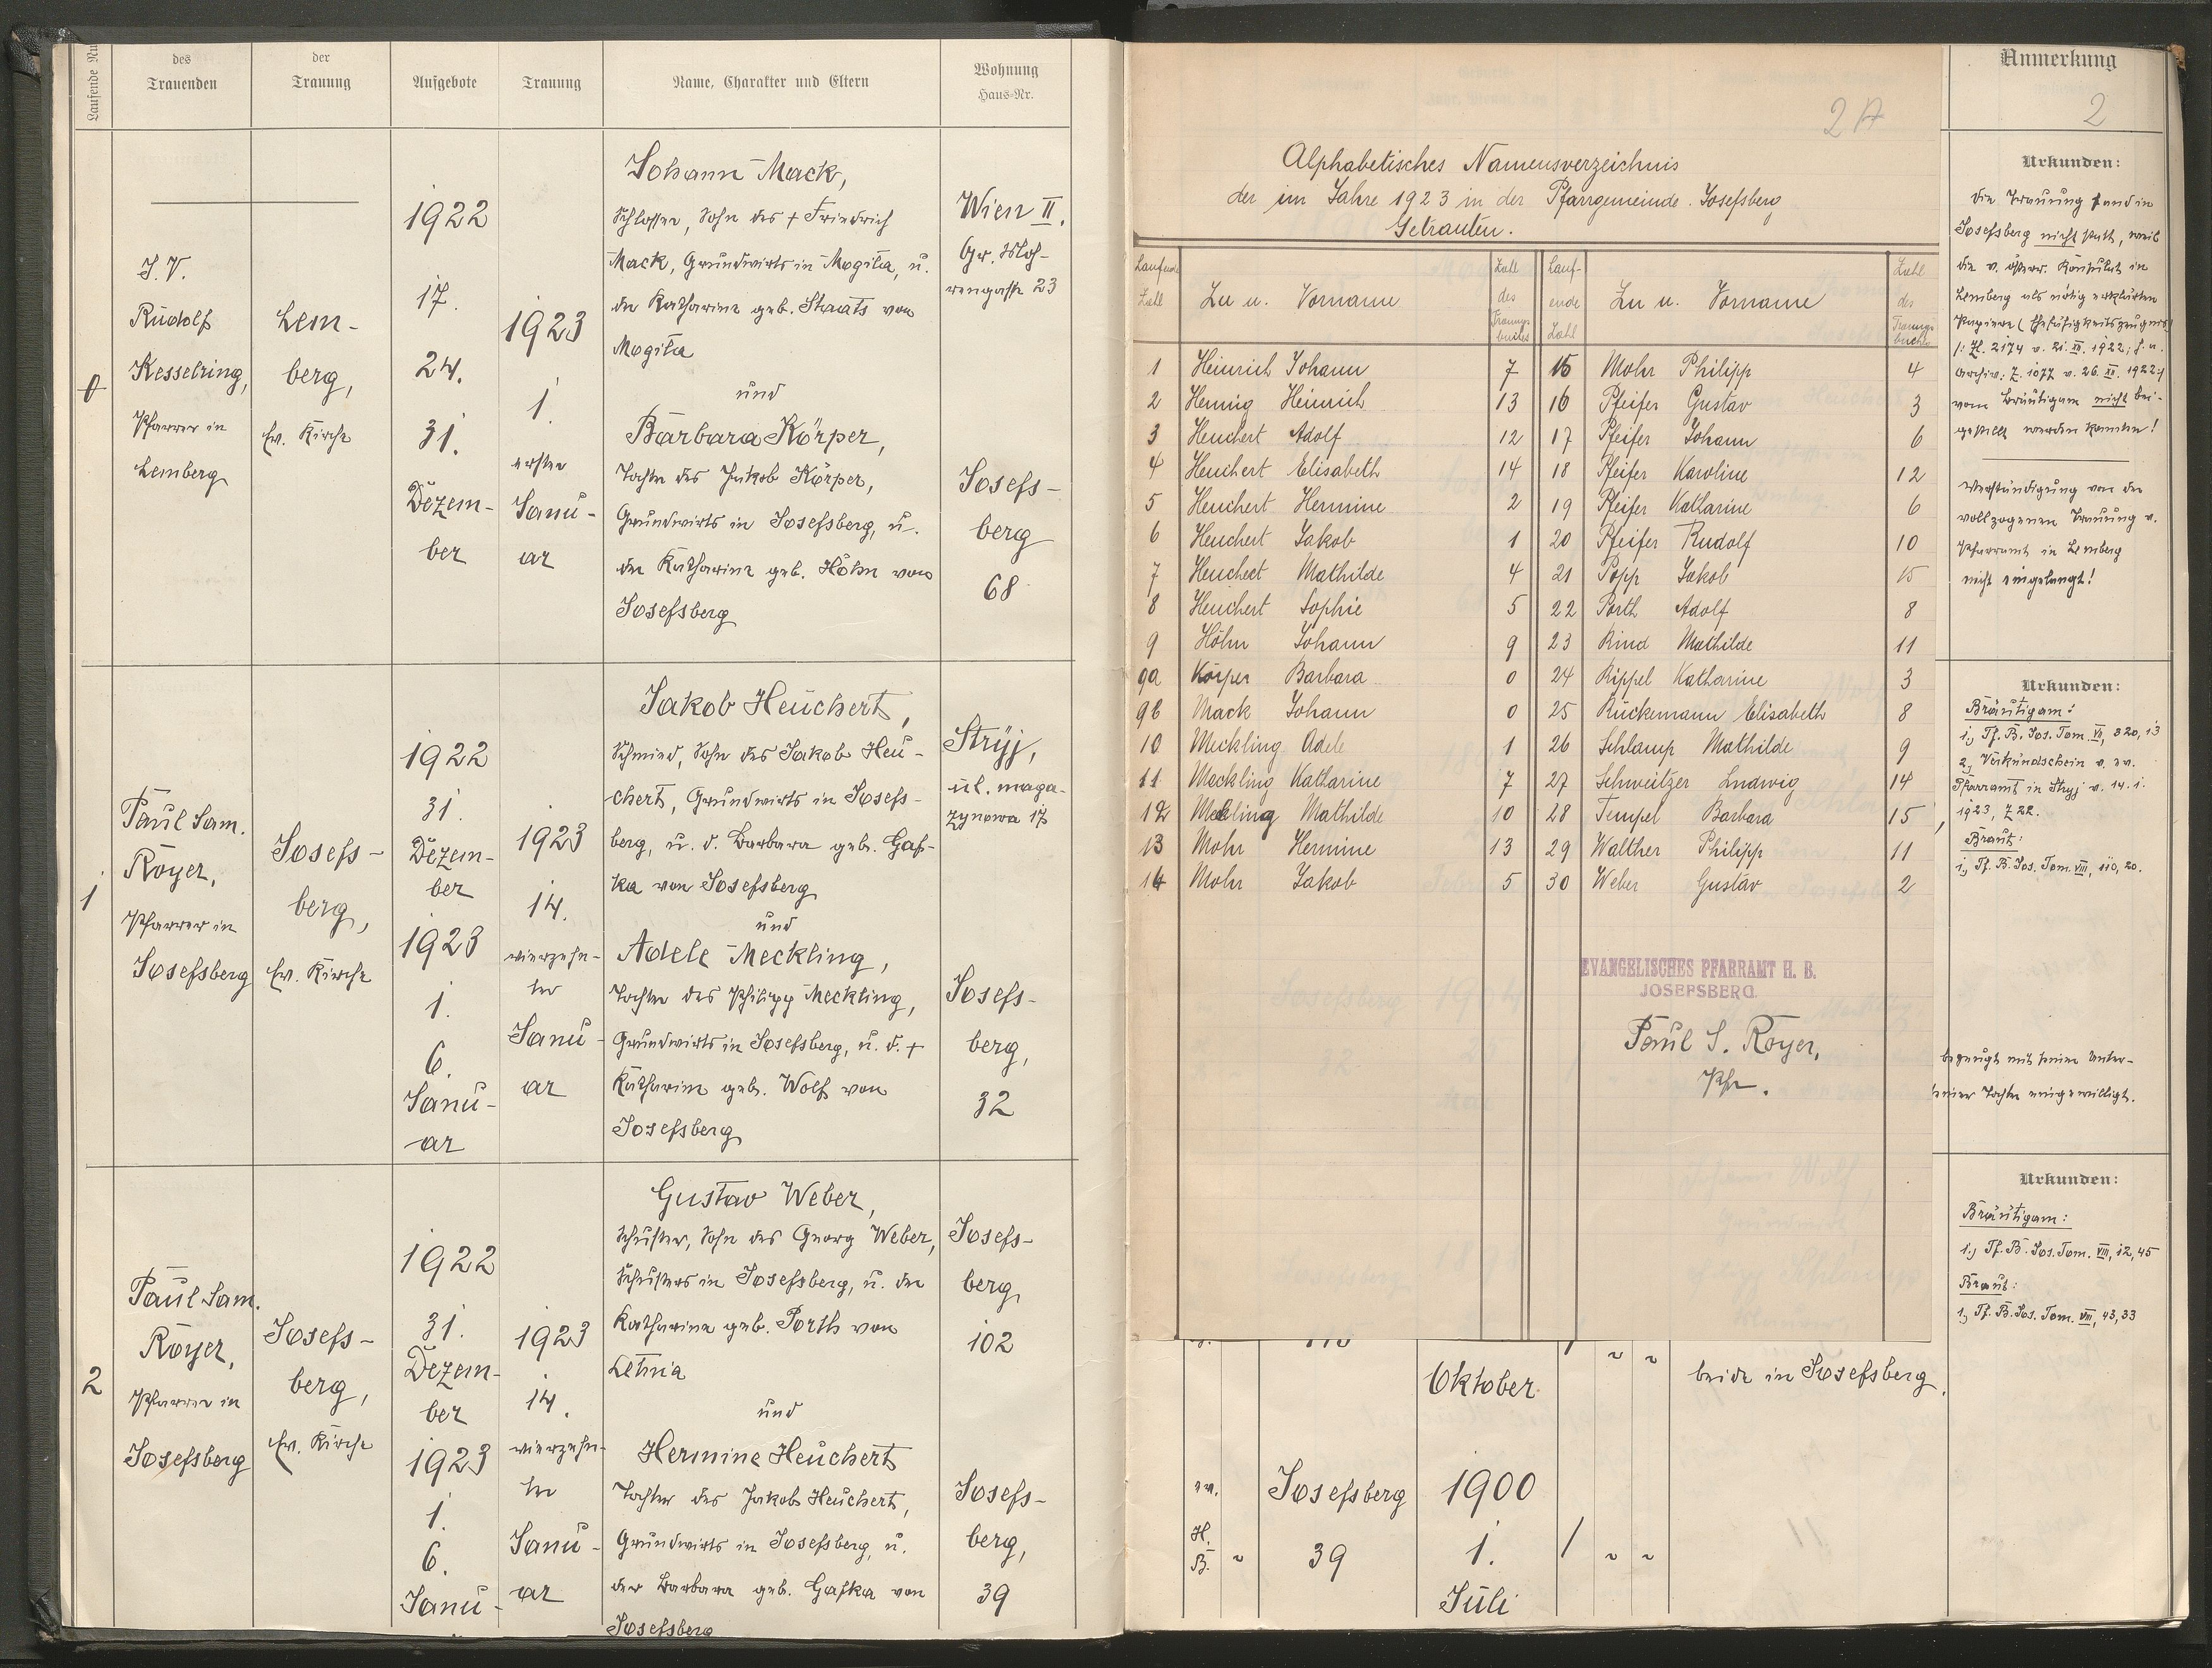 Laufende Nu
des
Trauenden
der
Trauung
Aufgebote
Trauung
Name, Charakter und Eltern
Wohnung
Haus-Nr.
0
J. V.
Rudolf
Kesselring,
Pfarrer in
Lemberg
Lem-
berg,
Ev. Kirche
1922
17.
24.
31.
Dezem-
ber
1923
1.
ersten
Janu-
ar
Johann Mack,
Schlosser, Sohn des + Friedrich
Mack, Grundwirts in Mogiła, u.
der Katharina geb. Staats von
Mogiła
und
Barbara Körper,
Tochter des Jakob Körper,
Grundwirts in Josefsberg, u.
der Katharina geb. Höhn von
Josefsberg
Wien II.
Gr. Moh-
rengasse 23
Josefs-
berg
68
1
Paul Sam.
Royer,
Pfarrer in
Josefsberg
Josefs-
berg,
Ev. Kirche
1922
31.
Dezem-
ber
1923
1.
6.
Janu-
ar
1923
14.
vierzehn-
ten
Janu-
ar
Jakob Heuchert,
Schmied, Sohn des Jakob Heu-
chert, Grundwirts in Josefs-
berg, u. d. Barbara geb. Gaf-
ka von Josefsberg
und
Adele Meckling,
Tochter des Philipp Meckling,
Grundwirts in Josefsberg, u. d. +
Katharina geb. Wolf von
Josefsberg
Stryj,
ul. maga-
zynowa 17
Josefs-
berg,
32
2
Paul Sam.
Royer,
Pfarrer in
Josefsberg
Josefs-
berg,
Ev. Kirche
1922
31.
Dezem-
ber
1923
1.
6.
Janu-
1923
14.
vierzehn-
ten
Janu-
ar
Gustav Weber,
Schuster, Sohn des Georg Weber,
Schusters in Josefsberg, u. der
Katharina geb. Porth von
Letnia
und
Hermine Heuchert
Tochter des Jakob Heuchert,
Grundwirts in Josefsberg, u.
der Barbara geb. Gafka von
Josefsberg
Josefs-
berg,
102
Josefs-
berg,
39
2A
Alphabetisches Namensverzeichnis
der im Jahre 1923 in der Pfarrgemeinde Josefsberg
Getrauten.
Laufende Zahl
Zu u. Vorname
Zahl des Trauungsbuches
Laufende Zahl
Zu u. Vorname
Zahl des Trauungsbuches
1 Heinrich Johann 7
2 Hennig Heinrich 13
3 Heuchert Adolf 12
4 Heuchert Elisabeth 14
5 Heuchert Hermine 2
6 Heuchert Jakob 1
7 Heuchert Mathilde 4
8 Heuchert Sophie 5
9 Höhn Johann 9
9a Körper Barbara 0
9b Mack Johann 0
10 Meckling Adele 1
11 Meckling Katharine 7
12 Meckling Mathilde 10
13 Mohr Hermine 13
14 Mohr Jakob 5
15 Mohr Philipp 4
16 Pfeifer Gustav 3
17 Pfeifer Johann 6
18 Pfeifer Karoline 12
19 Pfeifer Katharine 6
20 Pfeifer Rudolf 10
21 Popp Jakob 15
22 Porth Adolf 8
23 Rind Mathilde 11
24 Rippel Katharine 3
25 Rückemann Elisabeth 8
26 Schlamp Mathilde 9
27 Schweitzer Ludwig 14
28 Tempel Barbara 15
29 Walther Philipp 11
30 Weber Gustav 2
EVANGELISCHES PFARRAMT H. B.
JOSEFSBERG
Paul S. Royer,
Pfr.
Oktober
beide in Josefsberg.
ev.
H.
B.
Josefsberg
39
1900
1.
Juli
Anmerkung
2
Urkunden:
Die Trauung fand in
Josefsberg nicht statt, weil
die v. österr. Konsulat in
Lemberg als nötig erklärten
Papiere (Ehefähigkeitszeugnis)
/: Zl. 2174 v. 21. XII. 1922; s. u.
Archiv: Z. 1077 v. 26. XII. 1922:/
vom Bräutigam nicht bei-
gestellt werden konnten!
Verständigung von der
vollzogenen Trauung v.
Pfarramt in Lemberg
nicht eingelangt!
Urkunden:
Bräutigam:
1., Tf. B. Jos. Tom. VI, 320, 13
2., Verkündschein v. ev.
Pfarramt in Stryj v. 14. 1.
1923, Z 22.
Braut:
1., Tf. B. Jos. Tom. VIII, 110, 20.
bezeugt mit seiner Unter-
seiner Tochter eingewilligt.
Urkunden:
Bräutigam:
1., Tf. B. Jos. Tom. VIII, 12, 45
Braut:
1., Tf. B. Jos. Tom. VII, 43, 33